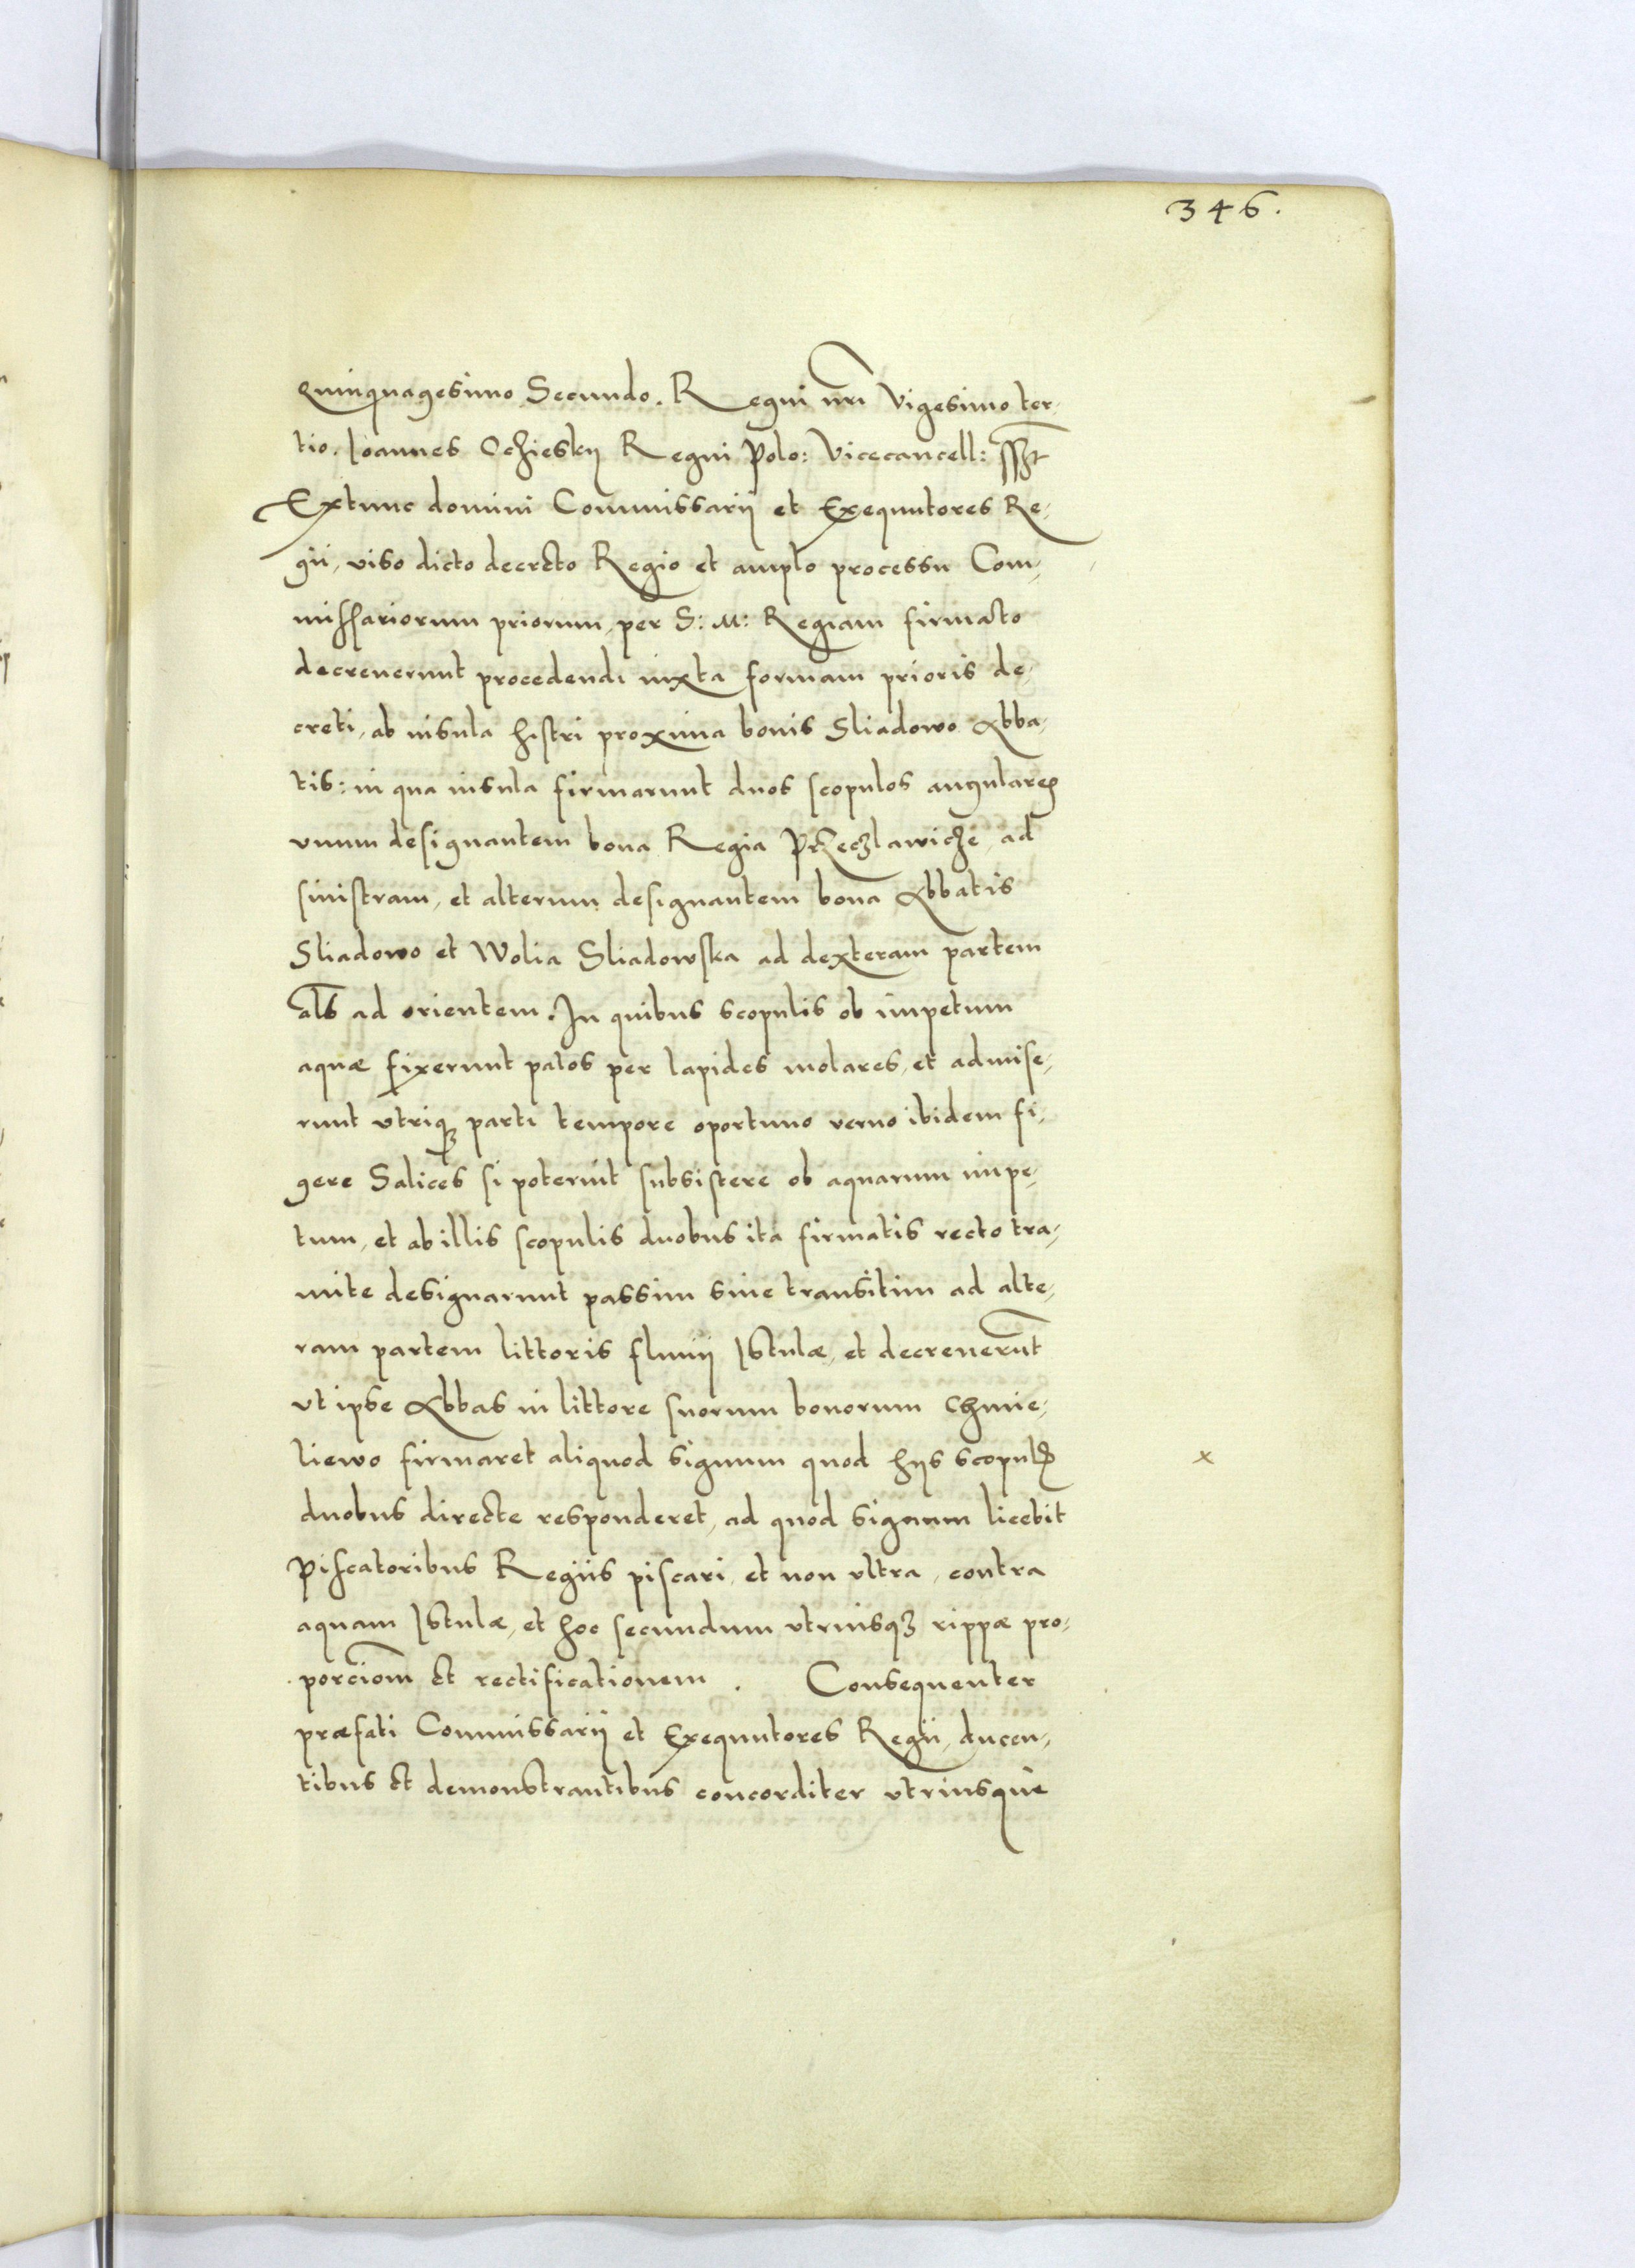 346.
Quinquagesimo Secundo. Regni nri Vigesimo ter,
tio. Ioannes Oczieskij Regni Polo: Vicecancell: sszt
Extunc domini Commissarij et Exequutores Re,
gii, viso dicto decreto Regio et amplo processu Com,
missariorum priorum, per S: M: Regiam firmato
decreuerunt procedendi iuxta formam prioris de,
creti, ab insula histri proxima bonis Sliadowo Abba,
tis: in qua insula firmarunt duos scopulos angulares
vnum designantem bona Regia Przeczlawicze, ad
sinistram, et alterum designantem bona Abbatis
Sliadowo et Wolia Sliadowska ad dexteram partem
als ad orientem. In quibus scopulis ob impetum
aquæ fixerunt palos per lapides molares, et admise,
runt vtriqȝ parti tempore oportuno verno ibidem fi,
gere Salices si poterint subsistere ob aquarum impe,
tum, et ab illis scopulis duobus ita firmatis recto tra,
mite designarunt passim siue transitim ad alte,
ram partem littoris fluuij Istulæ, et decreuerunt
vt ipse Abbas in littore suorum bonorum Chmie,
liewo firmaret aliquod signum quod hijs scopulis
x
duobus directe responderet, ad quod signum licebit
Piscatoribus Regiis piscari, et non vltra, contra
aquam Istulæ, et hoc secundum vtriusqȝ rippæ pro,
porciom et rectificationem. Consequenter
præfati Commissarij et Exequutores Regii, ducen,
tibus et demonstrantibus concorditer vtriusque